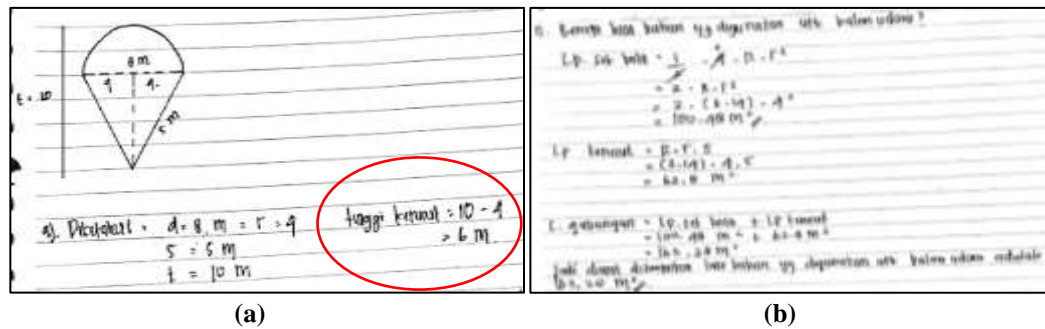 8 m
4 4
t = 10
5 m
a). Diketahui = d = 8 m = r = 4
s = 5 m
t = 10 m
tinggi kerucut = 10 - 4
= 6 m
Berapa luas bahan yg digunakan utk balon udara?
Lp. set bola = 1 . 4 . π . r²
= 2 . π . r²
= 2 . (3.14) . 4²
= 100.48 m²
Lp kerucut = π . r . s
= (3.14) . 4 . 5
= 62.8 m²
L. gabungan = Lp. set bola + Lp kerucut
= 100.48 m² + 62.8 m²
= 163.28 m²
Jadi dapat luas bahan yg digunakan utk balon udara adalah
m²
(a)
(b)